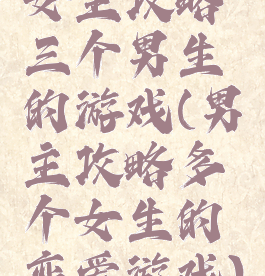 女主攻略
三个男生
的游戏(男
主攻略多
个女生的
恋爱游戏)